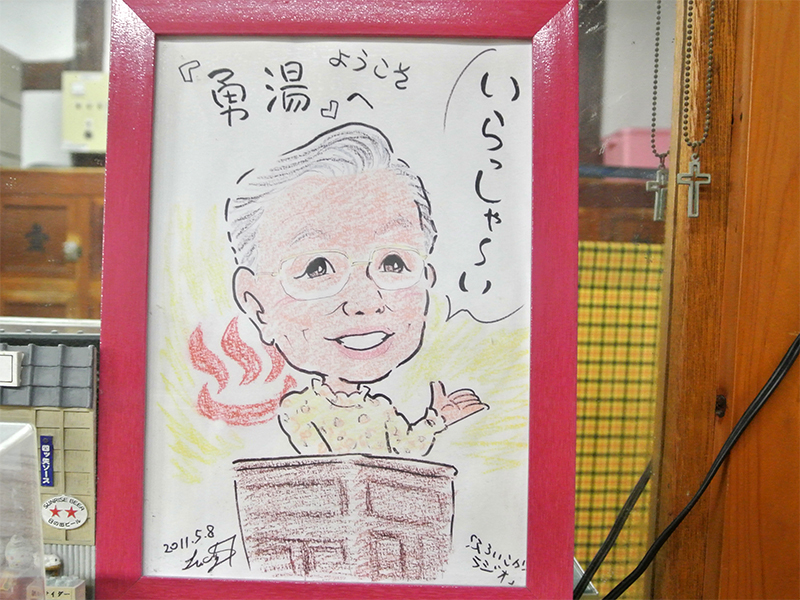 ようこそ
『勇湯』へ
いらっしゃ〜い
2011.5.8
ラジオ」
四ッ矢ソース
SUNRISE BEER
日の出ビール
イダー